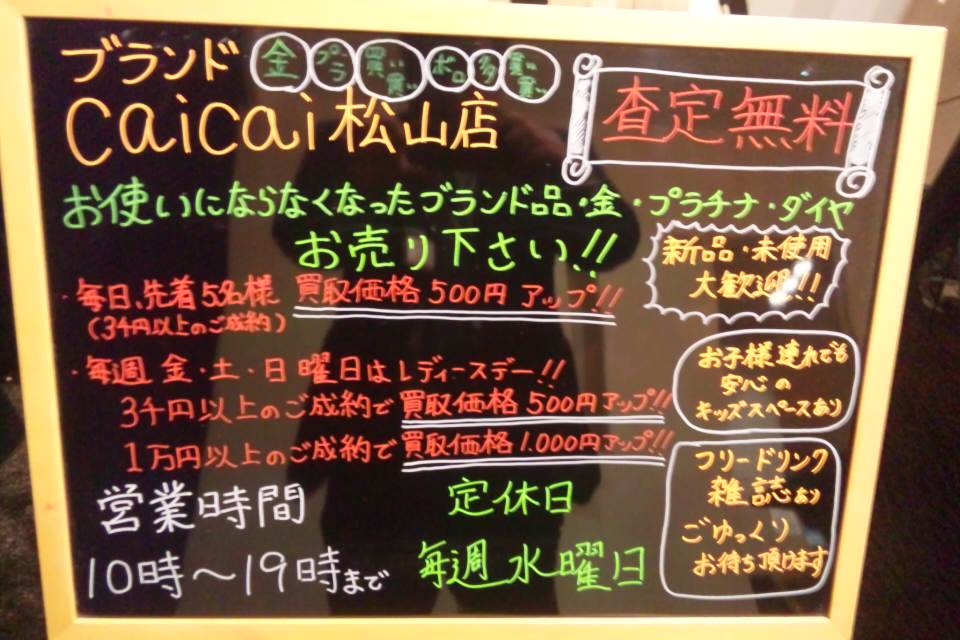 ブランド
金 プラ 買い買い
caicai松山店
査定無料
お使いにならなくなったブランド品・金・プラチナ・ダイヤ
お売り下さい!!
新品・未使用
大歓迎!!
・毎日、先着5名様 買取価格500円アップ!!
(3千円以上のご成約)
・毎週 金・土・日曜日はレディースデー!!
3千円以上のご成約で買取価格500円アップ!!
1万円以上のご成約で買取価格1.000円アップ!!
お子様連れでも
安心の
キッズスペースあり
フリードリンク
雑誌あり
ごゆっくり
お待ち頂けます
営業時間
10時～19時まで
定休日
毎週水曜日